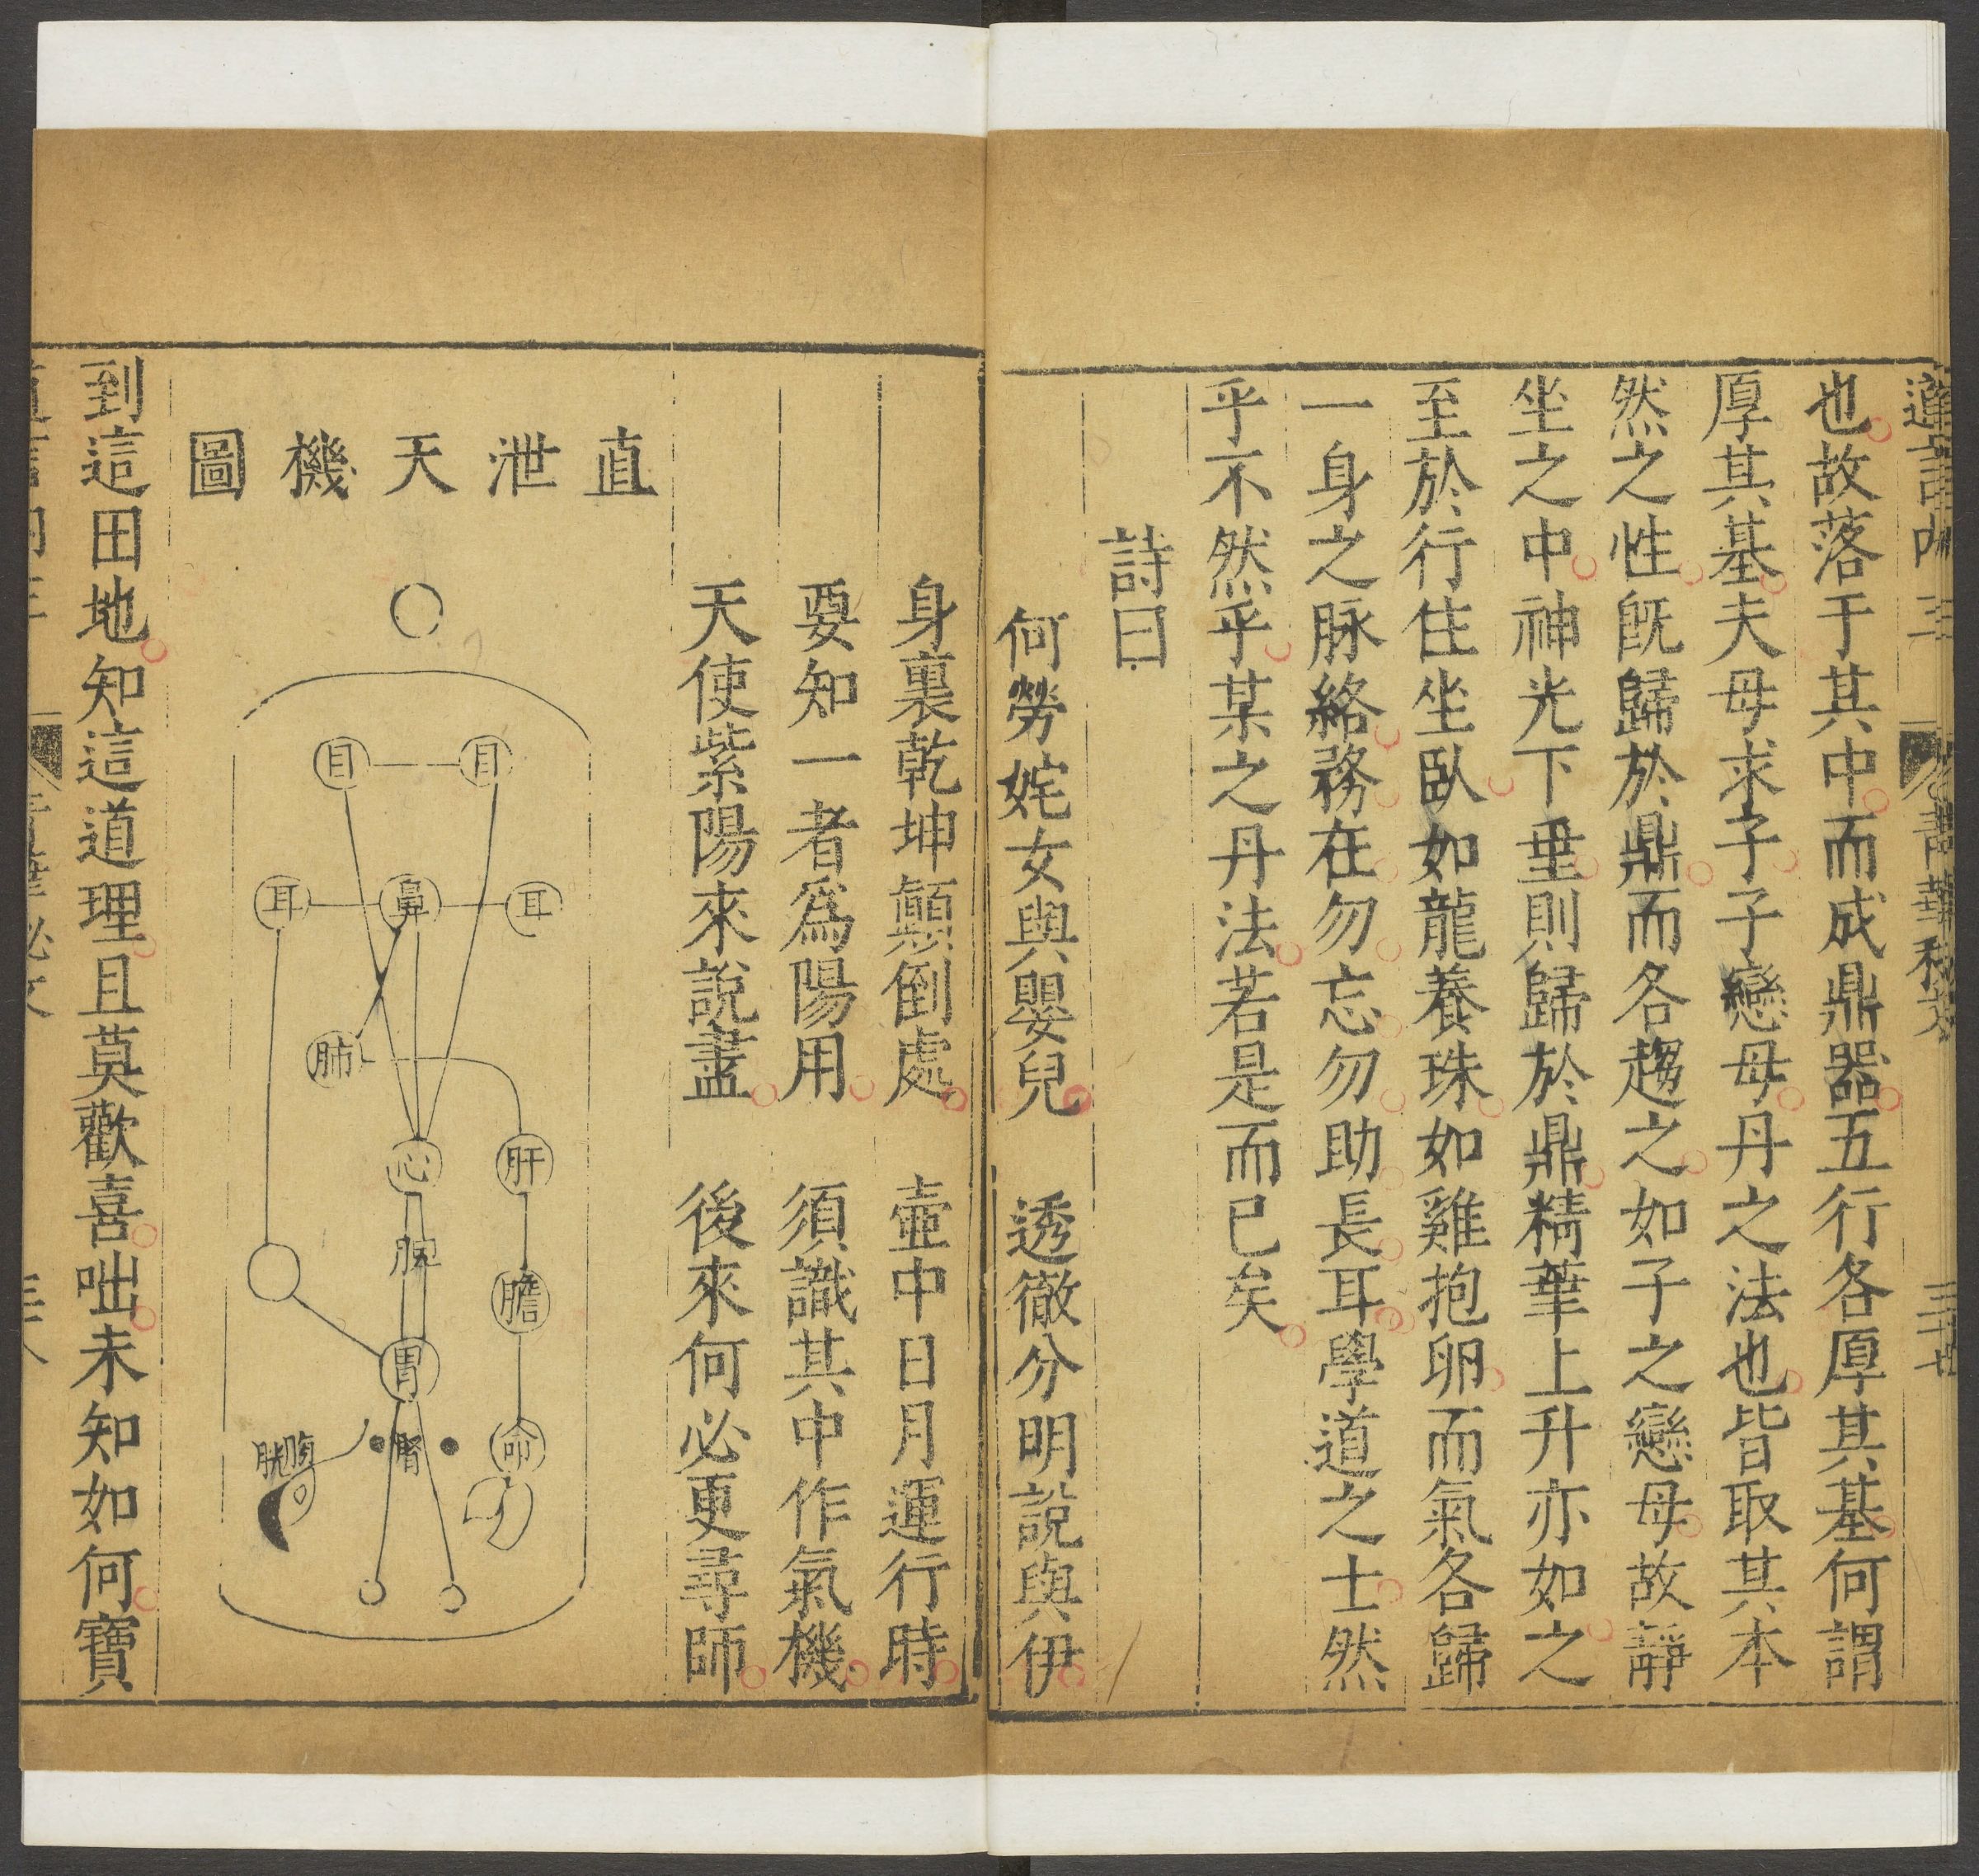 也故落于其中而成鼎器五行各厚其基何謂
厚其基夫母求子子戀母丹之法也皆取其本
然之性旣歸於鼎而各趨之如子之戀母故靜
坐之中神光下垂則歸於鼎精華上升亦如之
至於行住坐臥如龍養珠如雞抱卵而氣各歸
一身之脉絡務在勿忘勿助長耳學道之士然
乎不然乎某之丹法若是而已矣
詩曰
何勞姹女與嬰兒 透徹分明說與伊
身裏乾坤顚倒處 壷中日月運行時
要知一者爲陽用 須識其中作氣機
天使紫陽來說盡 後來何必更尋師
直泄天機圖
目 目
耳 鼻 耳
肺
心 肝
膽
胃
腎 命
膀胱
到這田地知這道理且莫歡喜咄未知如何寶